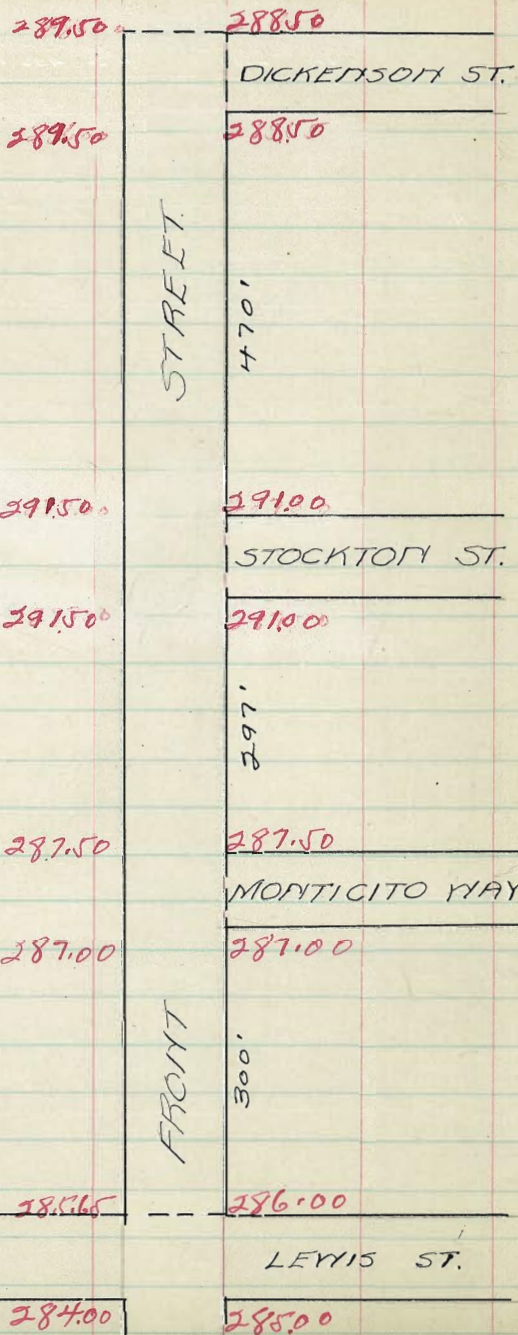 289.50 288.50
DICKENSON ST.
289.50 288.50
STREET.
470'
291.50 291.00
STOCKTON ST.
291.50 291.00
297'
287.50 287.50
MONTICITO WAY
287.00 287.00
FRONT
300'
285.65 286.00
LEWIS ST.
284.00 285.00